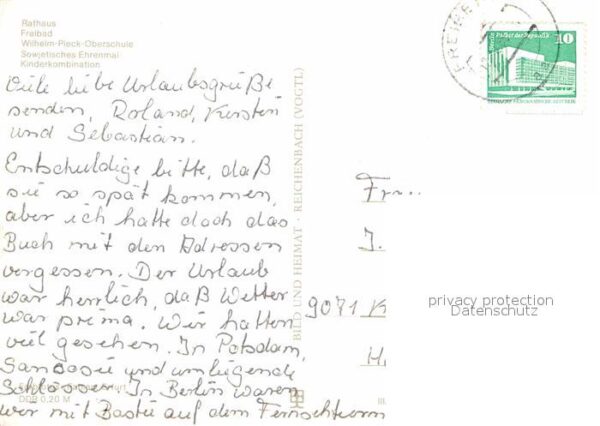 Rathaus
Freibad
Wilhelm-Pieck-Oberschule
Sowjetisches Ehrenmal
Kinderkombination
Viele liebe Urlaubsgrüße
senden, Roland, Kerstin
und Sebastian.
Entschuldige bitte, daß
sie so spät kommen,
aber ich hatte doch das
Buch mit den Adressen
vergessen. Der Urlaub
war herrlich, daß Wetter
war prima. Wir hatten
viel gesehen. In Potsdam,
Sanssosie und umliegende
Schlösser. In Berlin waren
wir mit Basti auf dem Fernsehturm
DDR 0,20 M
BILD UND HEIMAT · REICHENBACH (VOGTL)
Berlin Palast der Republik
10
DEUTSCHE DEMOKRATISCHE REPUBLIK
Fr
J.
9071 K
H
privacy protection
Datenschutz
III